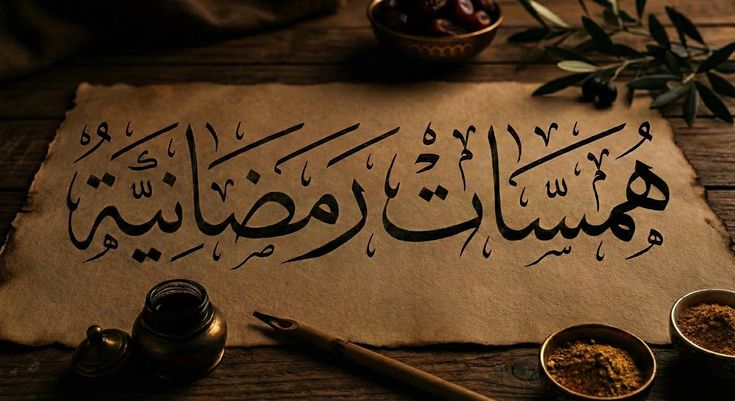 همسّات رمضانيّة